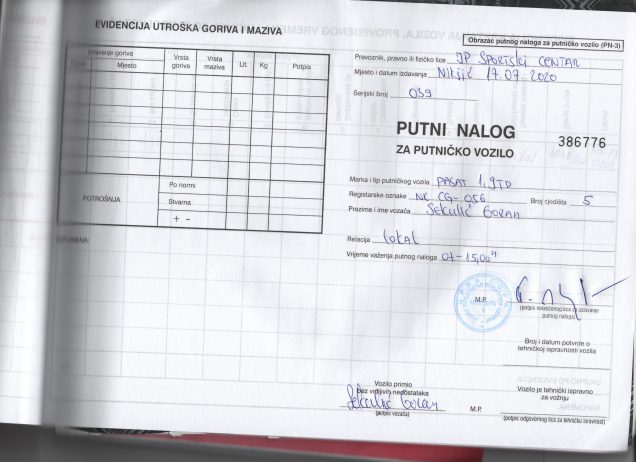 EVIDENCIJA UTROŠKA GORIVA I MAZIVA
Izdavanje goriva
Mjesto
Vrsta goriva
Vrsta maziva
Lit.
Kg.
Potpis
POTROŠNJA
Po normi
Stvarna
+ -
NAPOMENA:
Obrazac putnog naloga za putničko vozilo (PN-3)
Prevoznik, pravno ili fizičko lice JP SPORTSKI CENTAR
Mjesto i datum izdavanja Nikšić 17.07.2020
Serijski broj 039
PUTNI NALOG
ZA PUTNIČKO VOZILO
386776
Marka i tip putničkog vozila PASAT 1,9TD
Registarske oznake NK CG-056 Broj sjedišta 5
Prezime i ime vozača Sekulić Goran
Relacija Lokal
Vrijeme važenja putnog naloga 07-15,00 h
M.P.
(potpis ovlašćenog lica za izdavanje
putnog naloga)
Broj i datum potvrde o
tehničkoj ispravnosti vozila
Vozilo primio
bez vidljivih nedostataka
Sekulić Goran
(potpis vozača)
M.P.
Vozilo je tehnički ispravno
za vožnju
(potpis odgovornog lica za tehničku ispravnost)